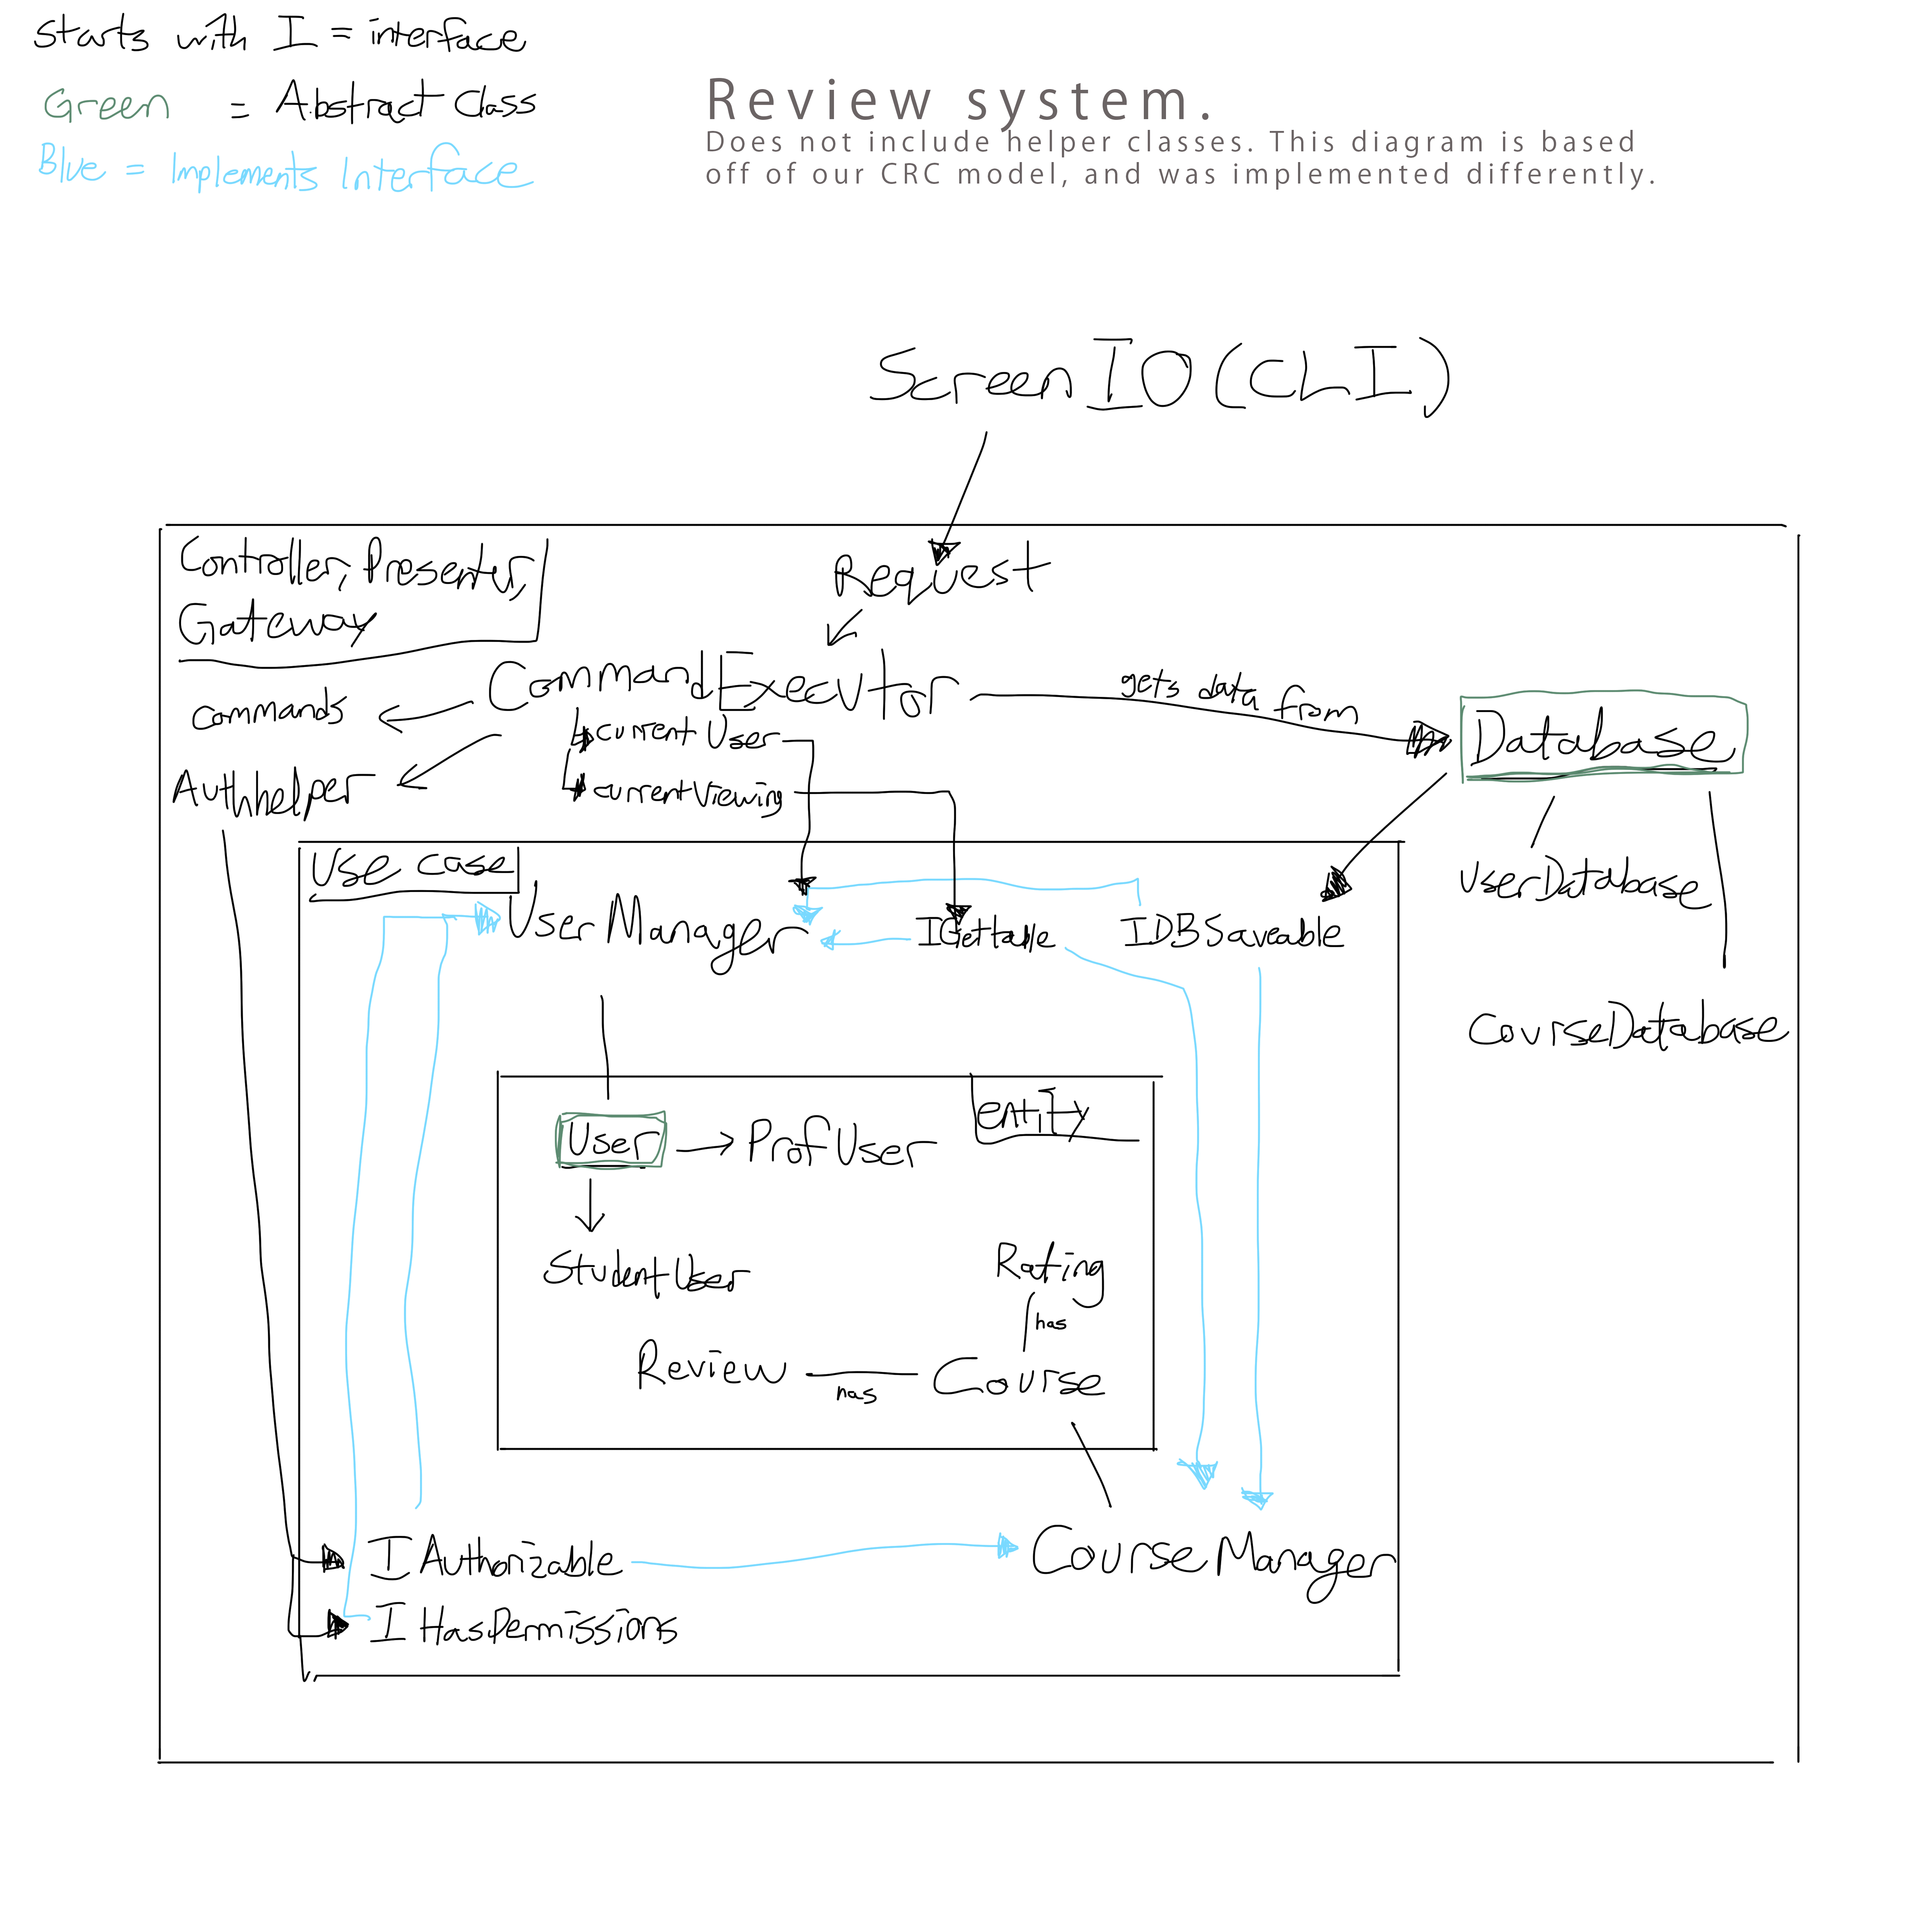 Starts with I = interface
Green = Abstract Class
Blue = Implements Interface
Review system.
Does not include helper classes. This diagram is based
off of our CRC model, and was implemented differently.
Screen IO (CLI)
Controller, Presenter,
Gateway
Request
CommandExecutor
commands
gets data from
Database
currentUser
Authhelper
currentViewing
Use case
UserDatabase
UserManager
IGettable
IDBSaveable
CourseDatabase
entity
User
ProfUser
StudentUser
Rating
has
Review
has
Course
IAuthorizable
CourseManager
IHasPermissions